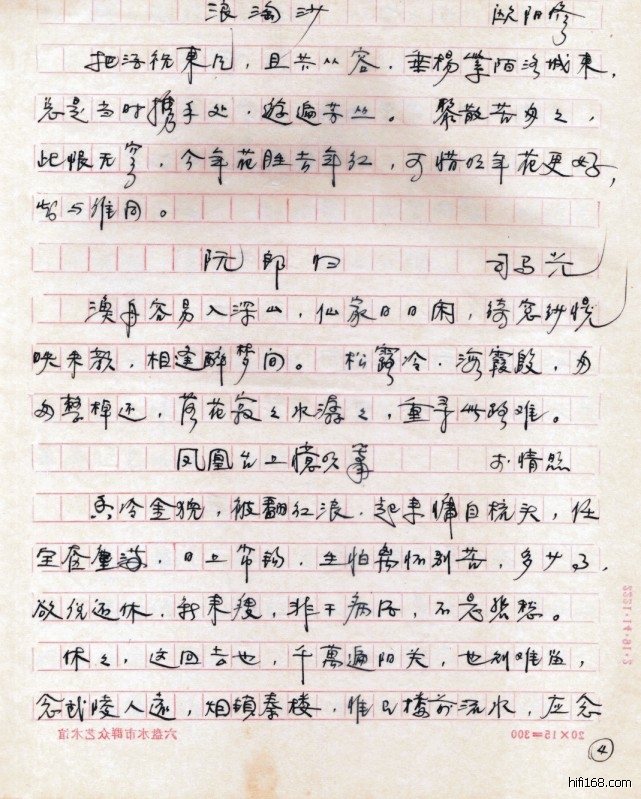 浪淘沙 欧阳修
把酒祝東风，且共从容，垂楊紫陌洛城東，
总是当时携手处，遊遍芳丛。 聚散苦匆々，
此恨无穷，今年花胜去年红，可惜明年花更好，
知与谁同。
阮郎归 司马光
渔舟容易入深山，仙家日日闲，绮窓纱幌
映朱颜，相逢醉梦间。 松露冷，海霞殷，匆
匆整棹还，落花寂々水潺々，重寻此路难。
凤凰台上憶吹箫 李清照
香冷金猊，被翻红浪，起来慵自梳头，任
宝奁塵满，日上帘钩，生怕离怀别苦，多少事，
欲说还休，新来瘦，非干病酒，不是悲愁。
休々，这回去也，千萬遍阳关，也则难留，
念武陵人遠，烟锁秦楼，惟有楼前流水，应念
六盘水市群众艺术馆 20×15=300
4
hifi168.com